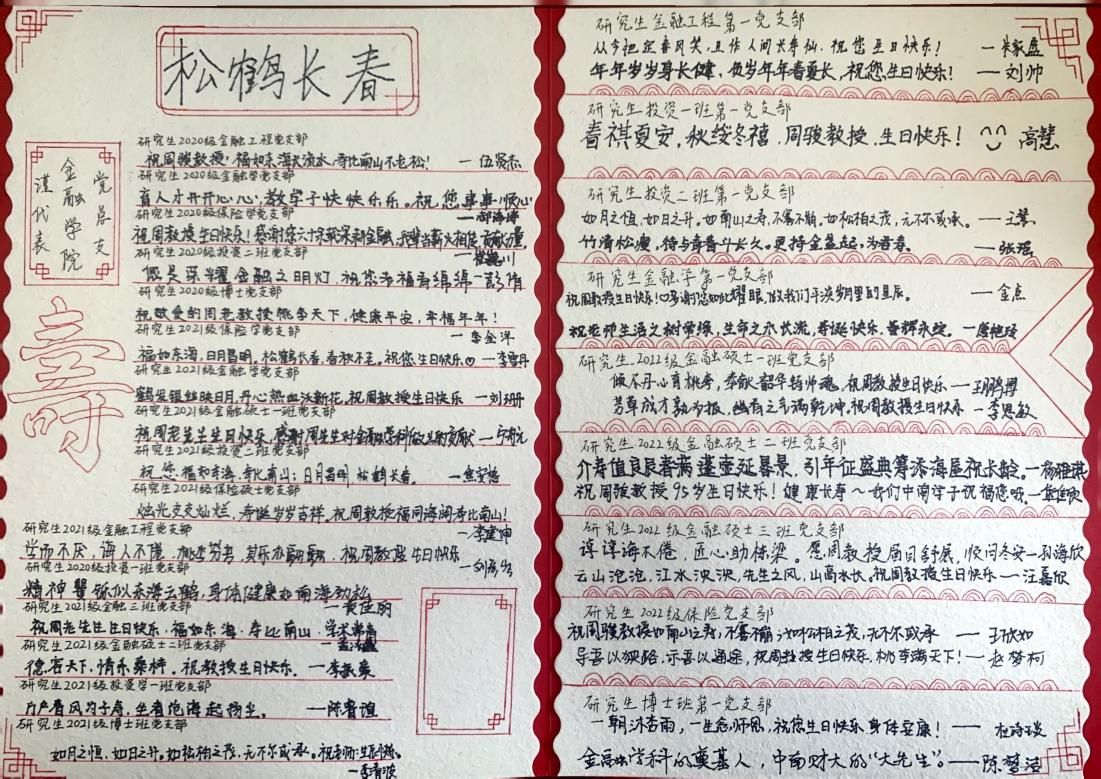 松鹤长春
金融学院
党总支
谨代表
寿
研究生2020级金融工程党支部
祝周骏教授，福如东海长流水，寿比南山不老松！ — 伍贤杰
研究生2020级金融学党支部
育人才开开心心，教学子快快乐乐。祝您事事顺心
研究生2020级保险学党支部
祝周教授生日快乐！感谢您六十余载深耕金融，我辈当薪火相传 贡献力量。
研究生2020级投资二班党支部
您是深耀金融之明灯，祝您老福寿绵绵
研究生2020级博士党支部
祝敬爱的周老教授桃李天下，健康平安，幸福年年！
— 李金洋
研究生2021级保险学党支部
福如东海，日月昌明。松鹤长春，春秋不老。祝您生日快乐♡ — 李雪丹
研究生2021级金融学党支部
鹤发银丝映日月，开心热血沃新花。祝周教授生日快乐 — 刘珊
研究生2021级金融硕士一班党支部
祝周老先生生日快乐，感谢周先生对金融学科做出的贡献
研究生2021级投资二班党支部
祝您：福如东海，寿比南山；日月昌明，松鹤长春。
研究生2021级保险硕士党支部
烛光支支灿烂，寿诞岁岁吉祥。祝周教授福同海阔寿比南山！
— 李建坤
研究生2021级金融工程党支部
学而不厌，诲人不倦，桃李芬芳，其乐亦融融，祝周教授生日快乐
研究生2020级投资一班党支部
精神矍铄似东海云鹤，身体健康如南海劲松
— 黄佳丽
研究生2021级金融三班党支部
祝周老先生生日快乐，福如东海，寿比南山，学术常青
研究生2021级金融硕士二班党支部
德杏天下，情系桑梓。祝教授生日快乐。
研究生2021级投资学一班党支部
户户春风为子寿，坐看沧海起扬尘。 — 陈睿谊
研究生2021级博士班党支部
如月之恒，如日之升。如松柏之茂，无不尔或承。祝老师：生日快乐。
— 季青波
研究生金融工程第一党支部
从今把定春风笑，且作人间长寿仙。祝您生日快乐！
年年岁岁身长健，负岁年年春夏长，祝您生日快乐！ — 刘帅
研究生投资一班第一党支部
春祺夏安，秋绥冬禧，周骏教授，生日快乐！ 高慧
研究生投资二班第一党支部
如月之恒，如日之升。如南山之寿，不骞不崩。如松柏之茂，无不尔或承。
竹清松瘦，待与青春斗长久。更持金盏起，为君寿。 — 张瑶
研究生金融学第一党支部
祝周教授生日快乐！心感谢您如此耀眼，做我们平淡岁月里的星辰。 — 金点
祝老师生活之树常绿，生命之水长流，寿诞快乐，春辉永绽。
研究生2022级金融硕士一班党支部
俯尽丹心育桃李，奉献韶华铸师魂，祝周教授生日快乐
芳草成才孰为报，幽有之气满乾坤，祝周教授生日快乐 — 李思敏
研究生2022级金融硕士二班党支部
介寿值良辰者满蓬壶延暮景，引年征盛典筹添海屋祝长龄。
祝周骏教授95岁生日快乐！健康长寿～我们中南学子祝福您哦
研究生2022级金融硕士三班党支部
谆谆诲不倦，匠心助栋梁。愿周教授眉目舒展，顺问冬安 — 孙海欣
云山沧沧，江水泱泱，先生之风，山高水长。祝周教授生日快乐 — 汪嘉欣
研究生2022级保险党支部
祝周骏教授如南山之寿，不骞不崩；如松柏之茂，无不尔或承 — 王欣如
导吾以狭路，示吾以通途，祝周教授生日快乐，桃李满天下！ — 赵梦柯
研究生博士班第一党支部
一朝沐杏雨，一生念师恩，祝您生日快乐，身体安康！ — 杜诗琰
金融学科的奠基人，中南财大的“大先生”。 — 陈梦洁